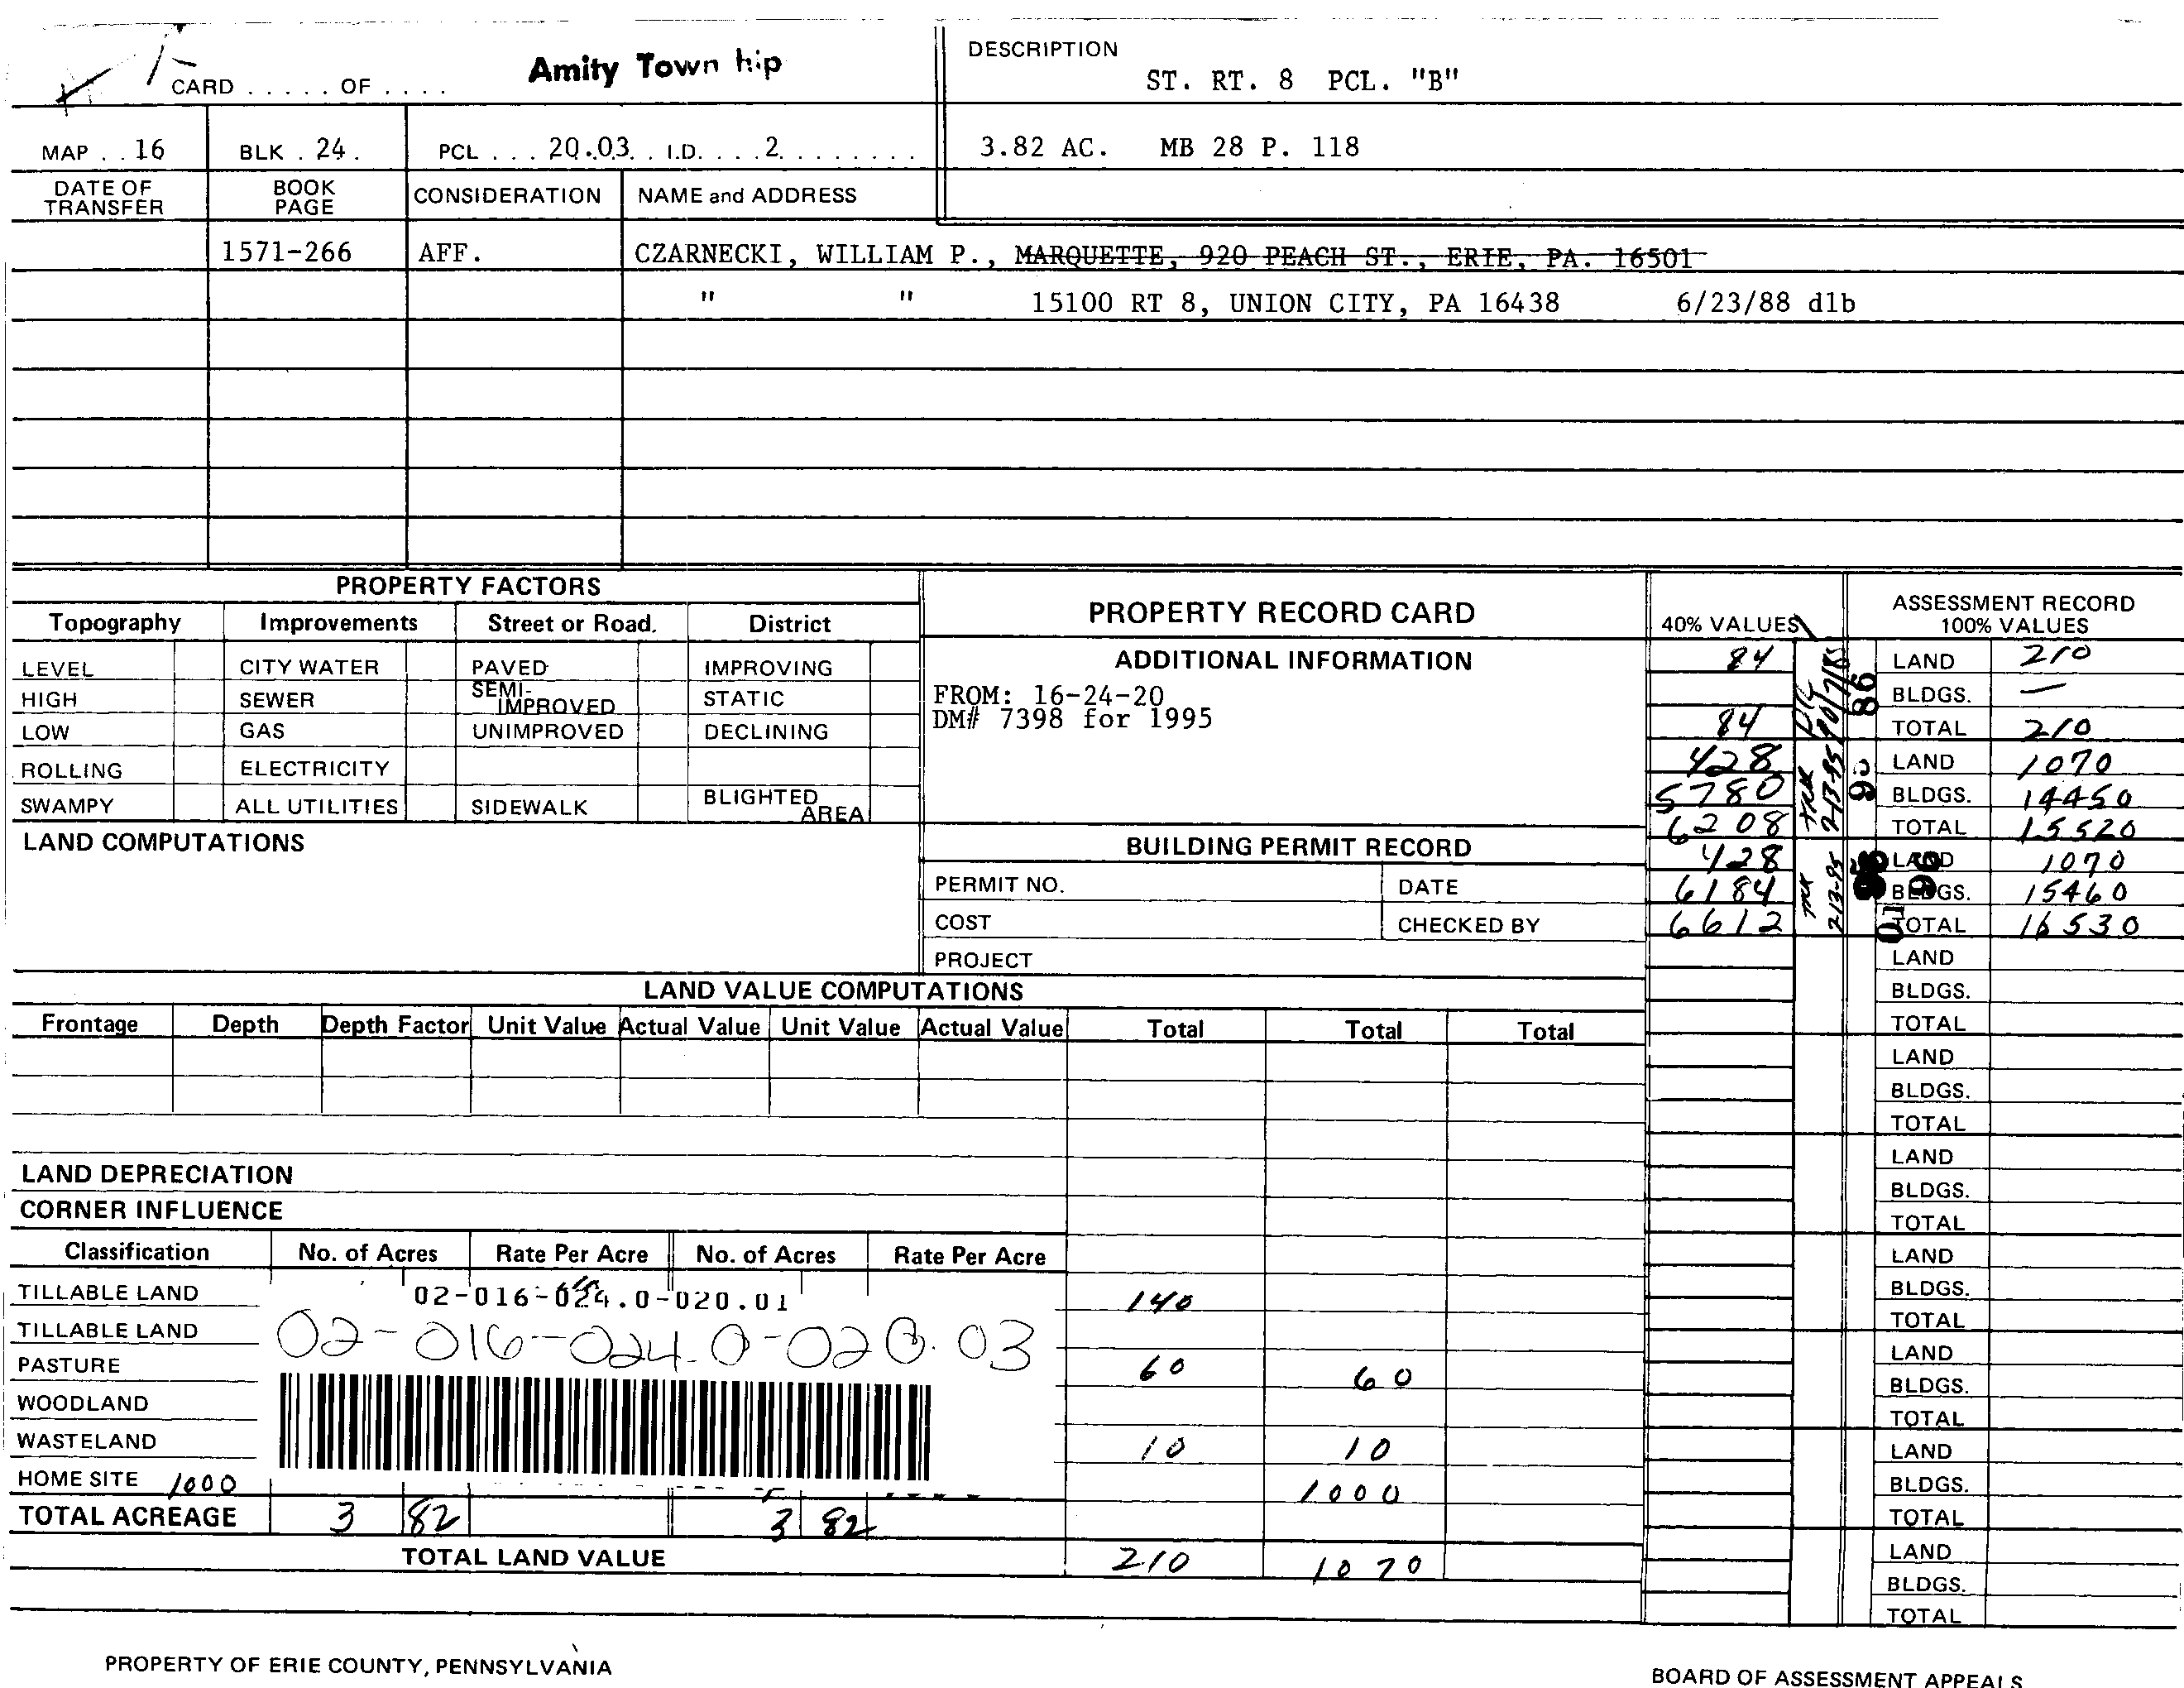 CARD . . . . . OF . . . .
Amity Town hip
DESCRIPTION
ST. RT. 8 PCL. "B"
MAP . . 16
BLK . 24 .
PCL . . . 20.03 . . I.D. . . . 2 . . . . . . . .
3.82 AC. MB 28 P. 118
DATE OF TRANSFER
BOOK PAGE
CONSIDERATION
NAME and ADDRESS
1571-266 AFF. CZARNECKI, WILLIAM P., MARQUETTE, 920 PEACH ST., ERIE, PA. 16501
" " 15100 RT 8, UNION CITY, PA 16438 6/23/88 dlb
PROPERTY FACTORS
Topography Improvements Street or Road. District
LEVEL CITY WATER PAVED IMPROVING
HIGH SEWER SEMI-IMPROVED STATIC
LOW GAS UNIMPROVED DECLINING
ROLLING ELECTRICITY
SWAMPY ALL UTILITIES SIDEWALK BLIGHTED AREA
LAND COMPUTATIONS
PROPERTY RECORD CARD
ADDITIONAL INFORMATION
FROM: 16-24-20
DM# 7398 for 1995
BUILDING PERMIT RECORD
PERMIT NO. DATE
COST CHECKED BY
PROJECT
40% VALUES
ASSESSMENT RECORD
100% VALUES
84 LAND 210
86 BLDGS. —
84 TOTAL 210
428 LAND 1070
5780 BLDGS. 14450
6208 2-13-95 TOTAL 15520
428 LAND 1070
6184 96 BLDGS. 15460
6612 2-13-95 TOTAL 16530
LAND
BLDGS.
TOTAL
LAND
BLDGS.
TOTAL
LAND
BLDGS.
TOTAL
LAND
BLDGS.
TOTAL
LAND
BLDGS.
TOTAL
LAND
BLDGS.
TOTAL
LAND
BLDGS.
TOTAL
LAND VALUE COMPUTATIONS
Frontage Depth Depth Factor Unit Value Actual Value Unit Value Actual Value Total Total Total
LAND DEPRECIATION
CORNER INFLUENCE
Classification No. of Acres Rate Per Acre No. of Acres Rate Per Acre
TILLABLE LAND 02-016-024.0-020.01 140
TILLABLE LAND 02-016-024.0-020.03
PASTURE 60 60
WOODLAND
WASTELAND 10 10
HOME SITE 1000 1000
TOTAL ACREAGE 3 82 3 82
TOTAL LAND VALUE 210 1070
PROPERTY OF ERIE COUNTY, PENNSYLVANIA
BOARD OF ASSESSMENT APPEALS